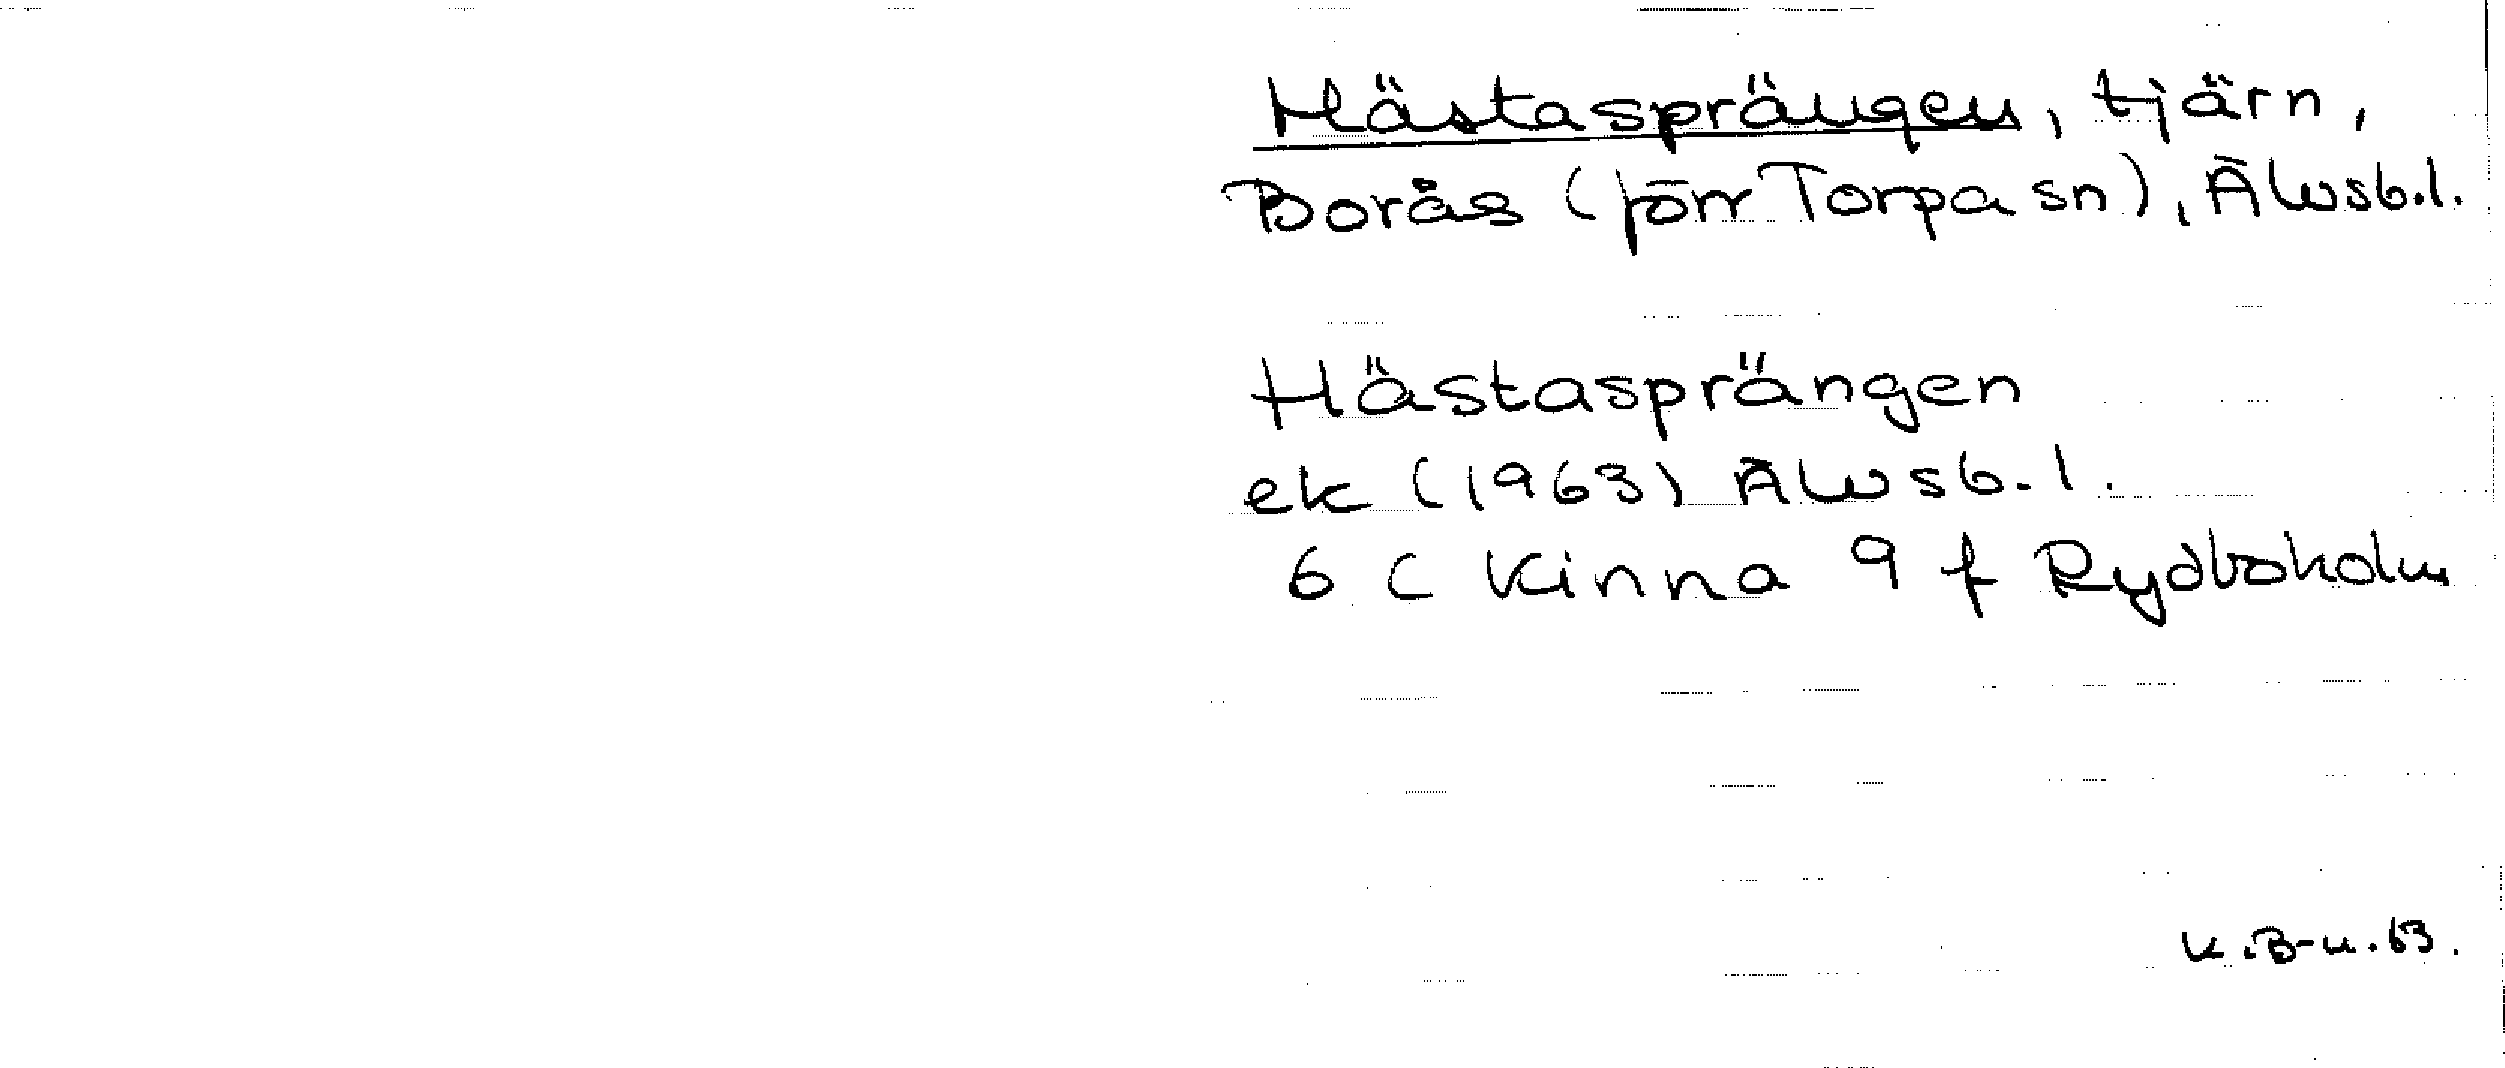 Hästasprängen, tjärn,
Borås (förr Torpa sn), Älvsb.l.
Hästasprängen
ek (1963) Älvsb.l.
6 C Kinna 9 f Rydboholm
K.B-n.63.